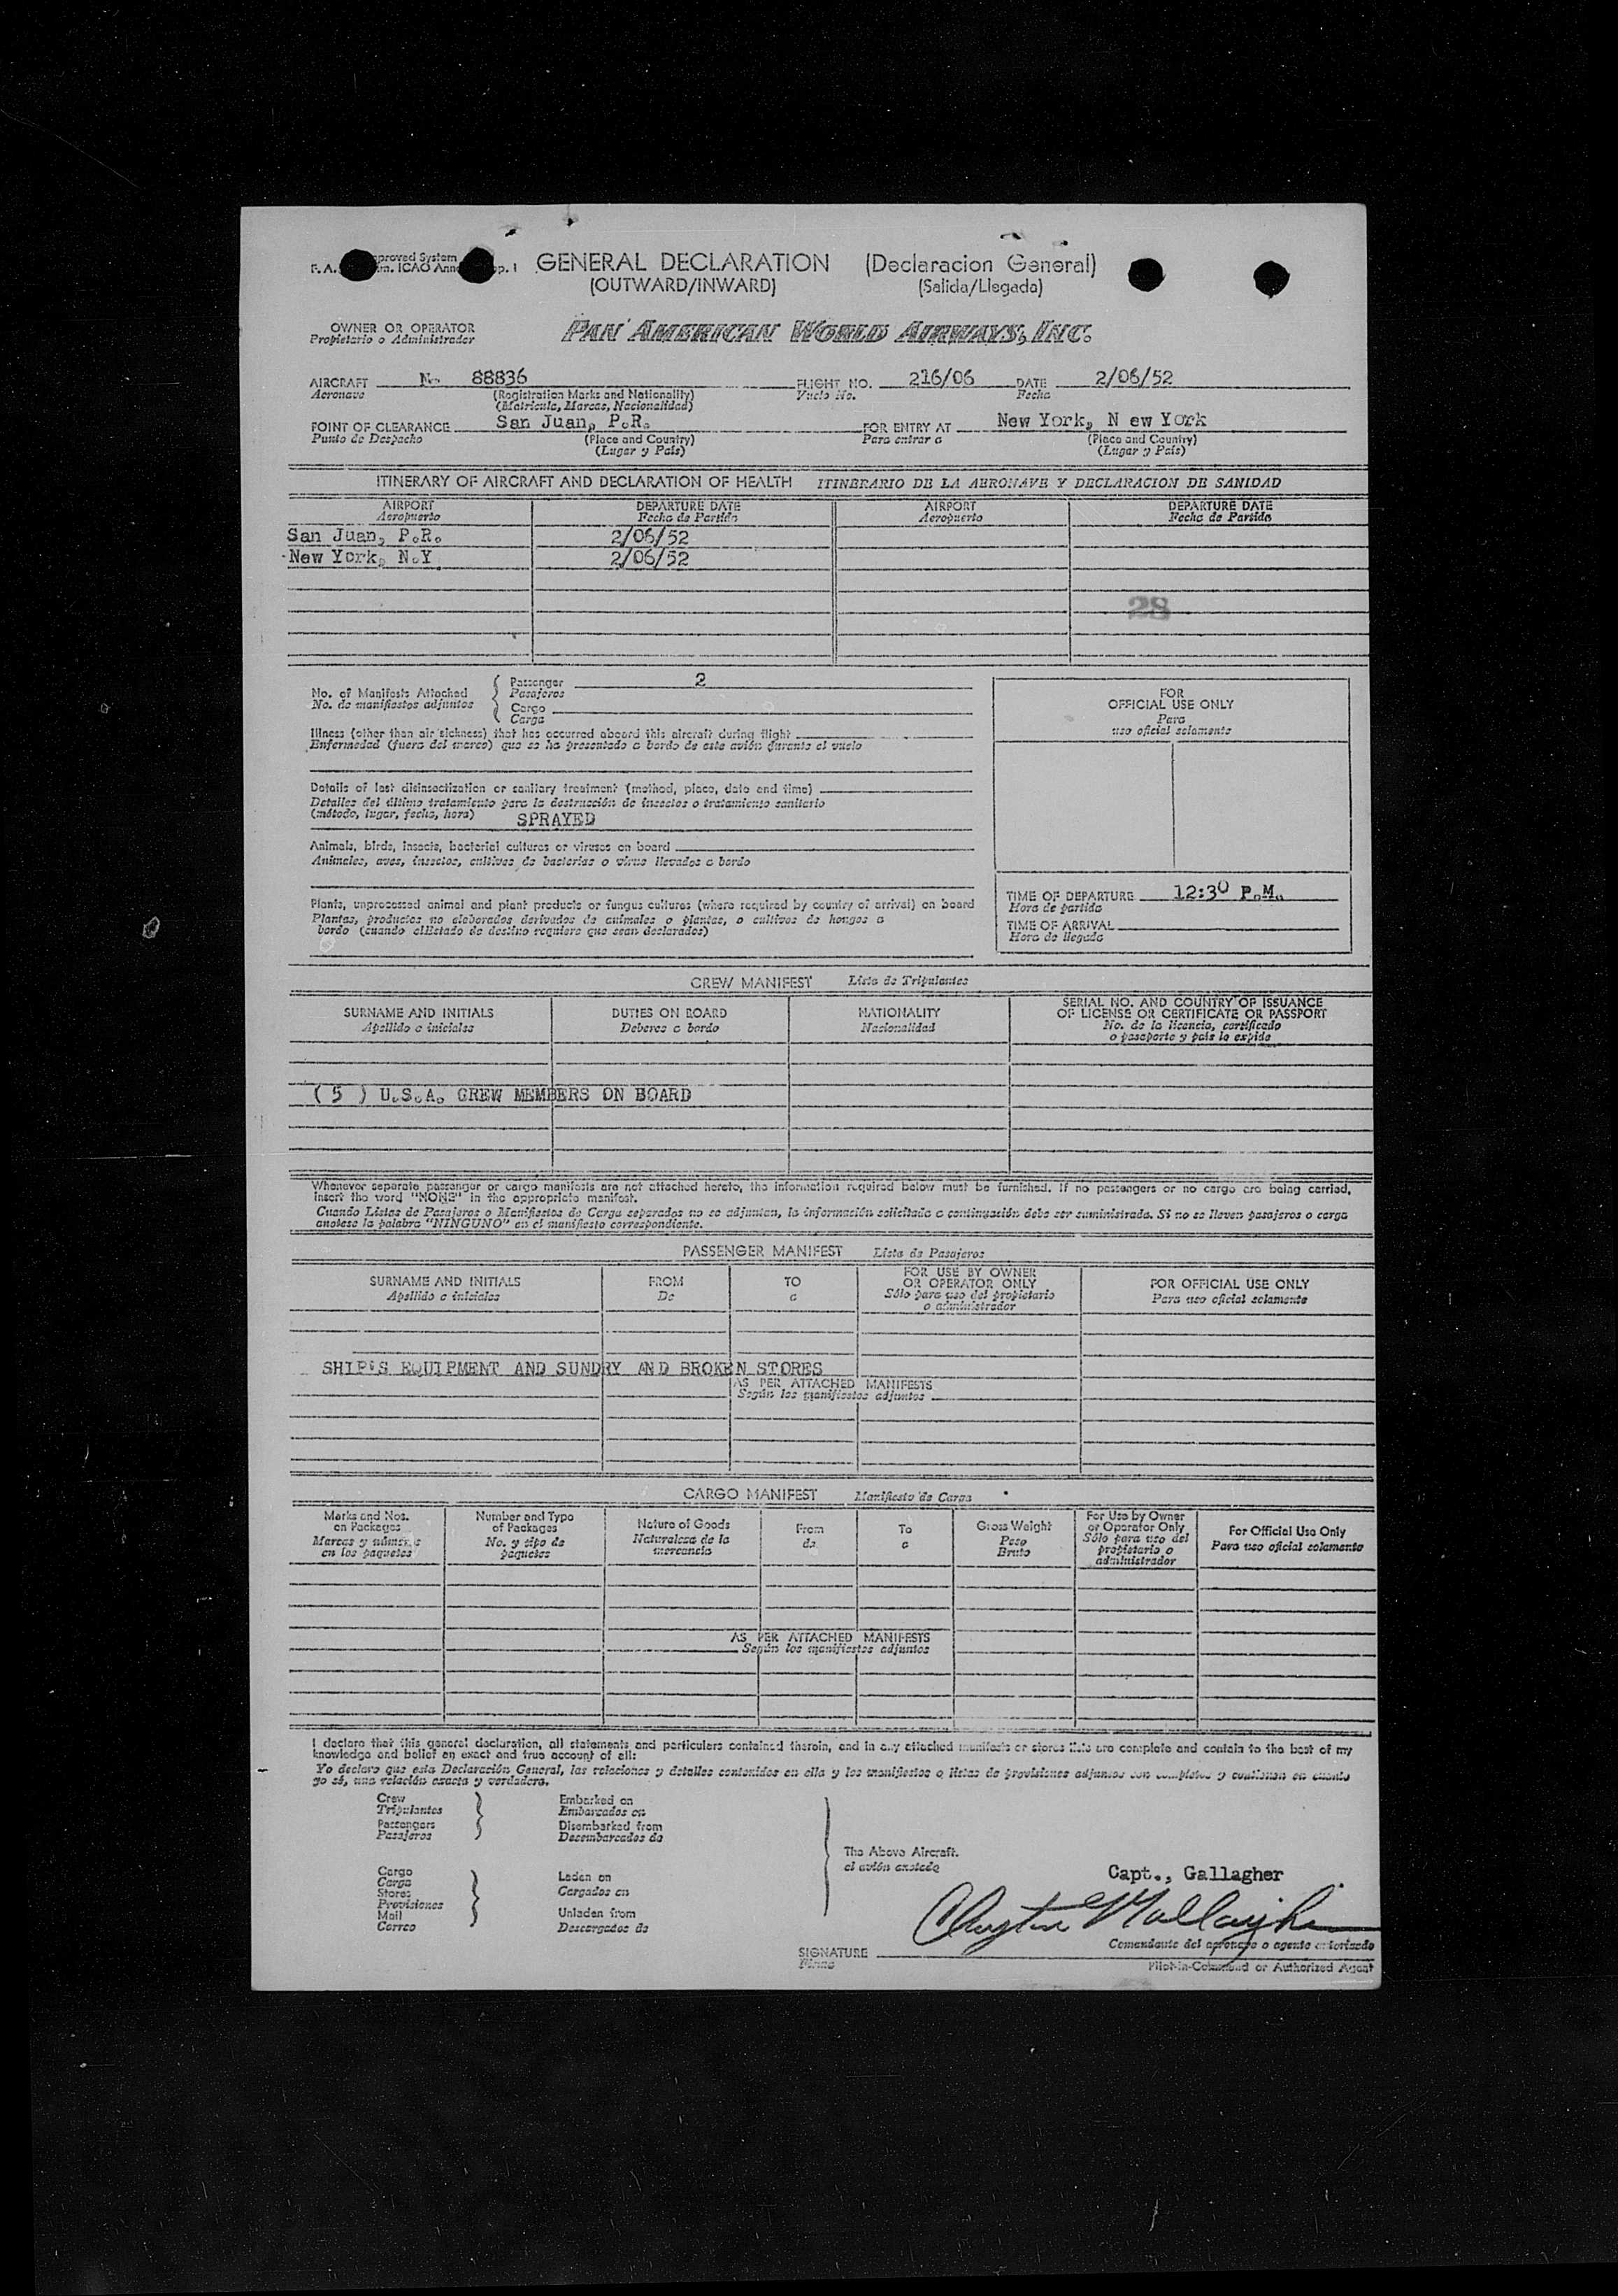 GENERAL DECLARATION (Declaracion General)
(OUTWARD/INWARD) (Salida/Llegada)
OWNER OR OPERATOR
Propietario o Administrador
PAN AMERICAN WORLD AIRWAYS, INC.
AIRCRAFT N- 88836 FLIGHT NO. 216/06 DATE 2/06/52
Aeronave (Registration Marks and Nationality) Vuelo No. Fecha
(Matricula, Marcas, Nacionalidad)
POINT OF CLEARANCE San Juan, P.R. FOR ENTRY AT New York, N ew York
Punto de Despacho (Place and Country) Para entrar a (Place and Country)
(Lugar y País) (Lugar y País)
ITINERARY OF AIRCRAFT AND DECLARATION OF HEALTH ITINERARIO DE LA AERONAVE Y DECLARACION DE SANIDAD
AIRPORT DEPARTURE DATE AIRPORT DEPARTURE DATE
Aeropuerto Fecha de Partida Aeropuerto Fecha de Partida
San Juan, P.R. 2/06/52
New York, N.Y 2/06/52
28
No. of Manifests Attached
No. de manifiestos adjuntos
Passenger 2
Pasajeros
Cargo
Carga
Illness (other than air sickness) that has occurred aboard this aircraft during flight
Enfermedad (fuera del mareo) que se ha presentado a bordo de este avión durante el vuelo
Details of last disinsectization or sanitary treatment (method, place, date and time)
Detalles del último tratamiento para la destrucción de insectos o tratamiento sanitario
(método, lugar, fecha, hora) SPRAYED
Animals, birds, insects, bacterial cultures or viruses on board
Animales, aves, insectos, cultivos de bacterias o virus llevados a bordo
Plants, unprocessed animal and plant products or fungus cultures (where required by country of arrival) on board
Plantas, productos no elaborados derivados de animales o plantas, o cultivos de hongos a
bordo (cuando elEstado de destino requiere que sean declarados)
FOR
OFFICIAL USE ONLY
Para
uso oficial solamente
TIME OF DEPARTURE 12:30 P.M.
Hora de partida
TIME OF ARRIVAL
Hora de llegada
CREW MANIFEST Lista de Tripulantes
SURNAME AND INITIALS DUTIES ON BOARD NATIONALITY SERIAL NO. AND COUNTRY OF ISSUANCE
OF LICENSE OR CERTIFICATE OR PASSPORT
Apellido e iniciales Deberes a bordo Nacionalidad No. de la licencia, certificado
o pasaporte y país lo expide
( 5 ) U.S.A. CREW MEMBERS ON BOARD
Whenever separate passenger or cargo manifests are not attached hereto, the information required below must be furnished. If no passengers or no cargo are being carried,
insert the word "NONE" in the appropriate manifest.
Cuando Listas de Pasajeros o Manifiestos de Carga separados no se adjuntan, la información solicitada a continuación debe ser suministrada. Si no se lleven pasajeros o carga
anotese la palabra "NINGUNO" en el manifiesto correspondiente.
PASSENGER MANIFEST Lista de Pasajeros
SURNAME AND INITIALS FROM TO FOR USE BY OWNER
OR OPERATOR ONLY FOR OFFICIAL USE ONLY
Apellido e iniciales De a Sólo para uso del propietario
o administrador Para uso oficial solamente
SHIP'S EQUIPMENT AND SUNDRY AND BROKEN STORES
AS PER ATTACHED MANIFESTS
Según los manifiestos adjuntos
CARGO MANIFEST Manifiesto de Carga
Marks and Nos.
on Packages
Marcas y números
en los paquetes
Number and Type
of Packages
No. y tipo de
paquetes
Nature of Goods
Naturaleza de la
mercancia
From
de
To
a
Gross Weight
Peso
Bruto
For Use by Owner
or Operator Only
Sólo para uso del
propietario o
administrador
For Official Use Only
Para uso oficial solamente
AS PER ATTACHED MANIFESTS
Según los manifiestos adjuntos
I declare that this general declaration, all statements and particulars contained therein, and in any attached manifests or stores lists are complete and contain to the best of my
knowledge and belief an exact and true account of all:
Yo declaro que esta Declaración General, las relaciones y detalles contenidos en ella y los manifiestos o listas de provisiones adjuntos son completos y contienen en cuanto
yo sé, una relación exacta y verdadera.
Crew
Tripulantes
Passengers
Pasajeros
Embarked on
Embarcados en
Disembarked from
Desembarcados de
Cargo
Carga
Stores
Provisiones
Mail
Correo
Laden on
Cargados en
Unladen from
Descargados de
The Above Aircraft.
Capt., Gallagher
SIGNATURE
Firma
Comandante del aeronave o agente autorizado
Pilot-in-Command or Authorized Agent